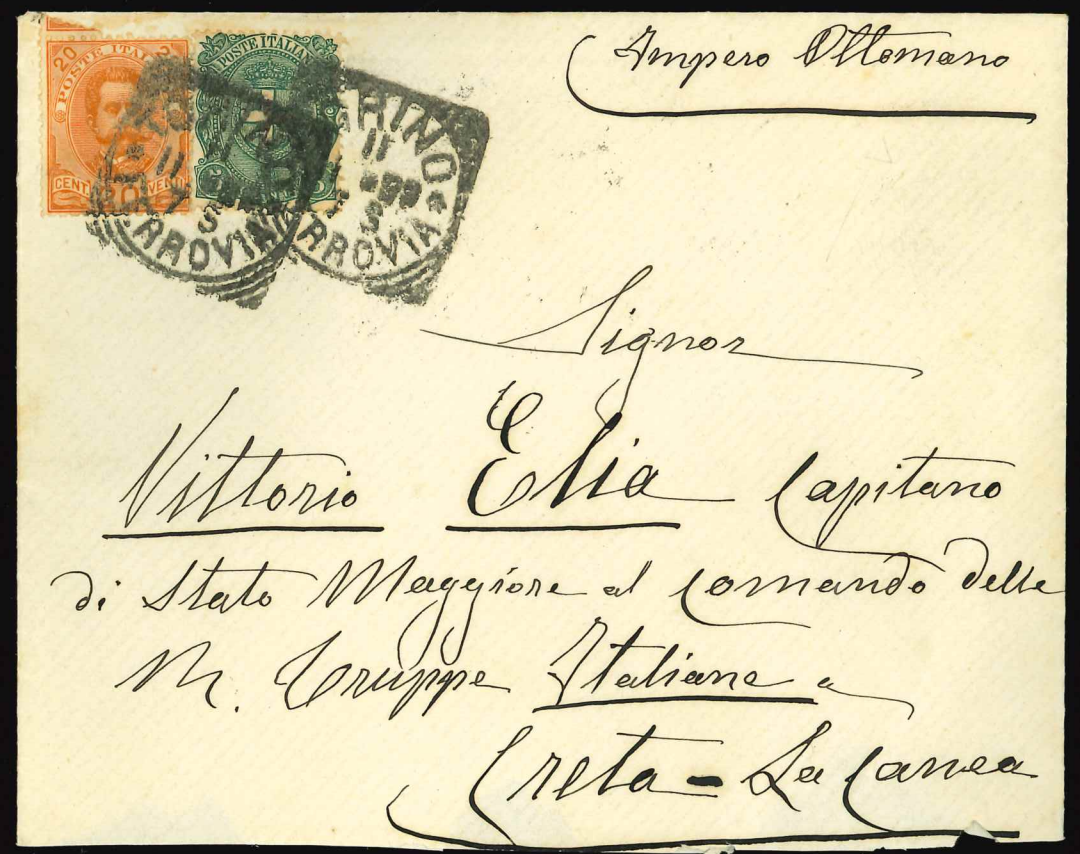 Impero Ottomano
20 POSTE ITAL 2
CENT. VENTI
20
POSTE ITALIAN
5
TORINO
11
FERROVIA
TORINO
11
98
5
FERROVIA
Signor
Vittorio Elia Capitano
di Stato Maggiore al Comando delle
R. Truppe Italiane a
Creta - La Canea